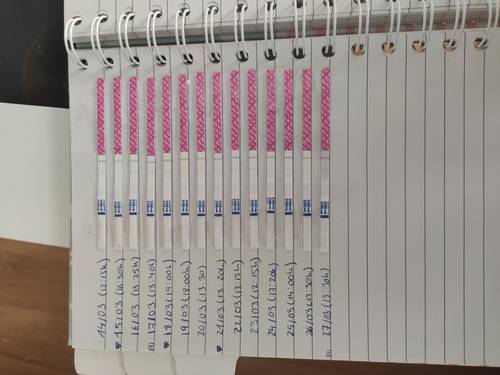 14/03 (12:15h)
♥ 15/03 (16:30h)
16/03 (13:25h)
17/03 (13:40h)
♥ 18/03 (14:00h)
19/03 (18:00h)
20/03 (13:30)
♥ 21/03 (13:20h)
22/03 (13:15h)
23/03 (12:15h)
24/03 (17:20h)
25/03 (14:00h)
26/03 (17:30h)
27/03 (13:30h)